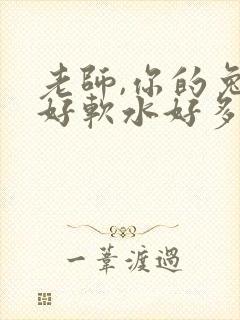 老師,你的兔
好軟水好多
一葦渡過